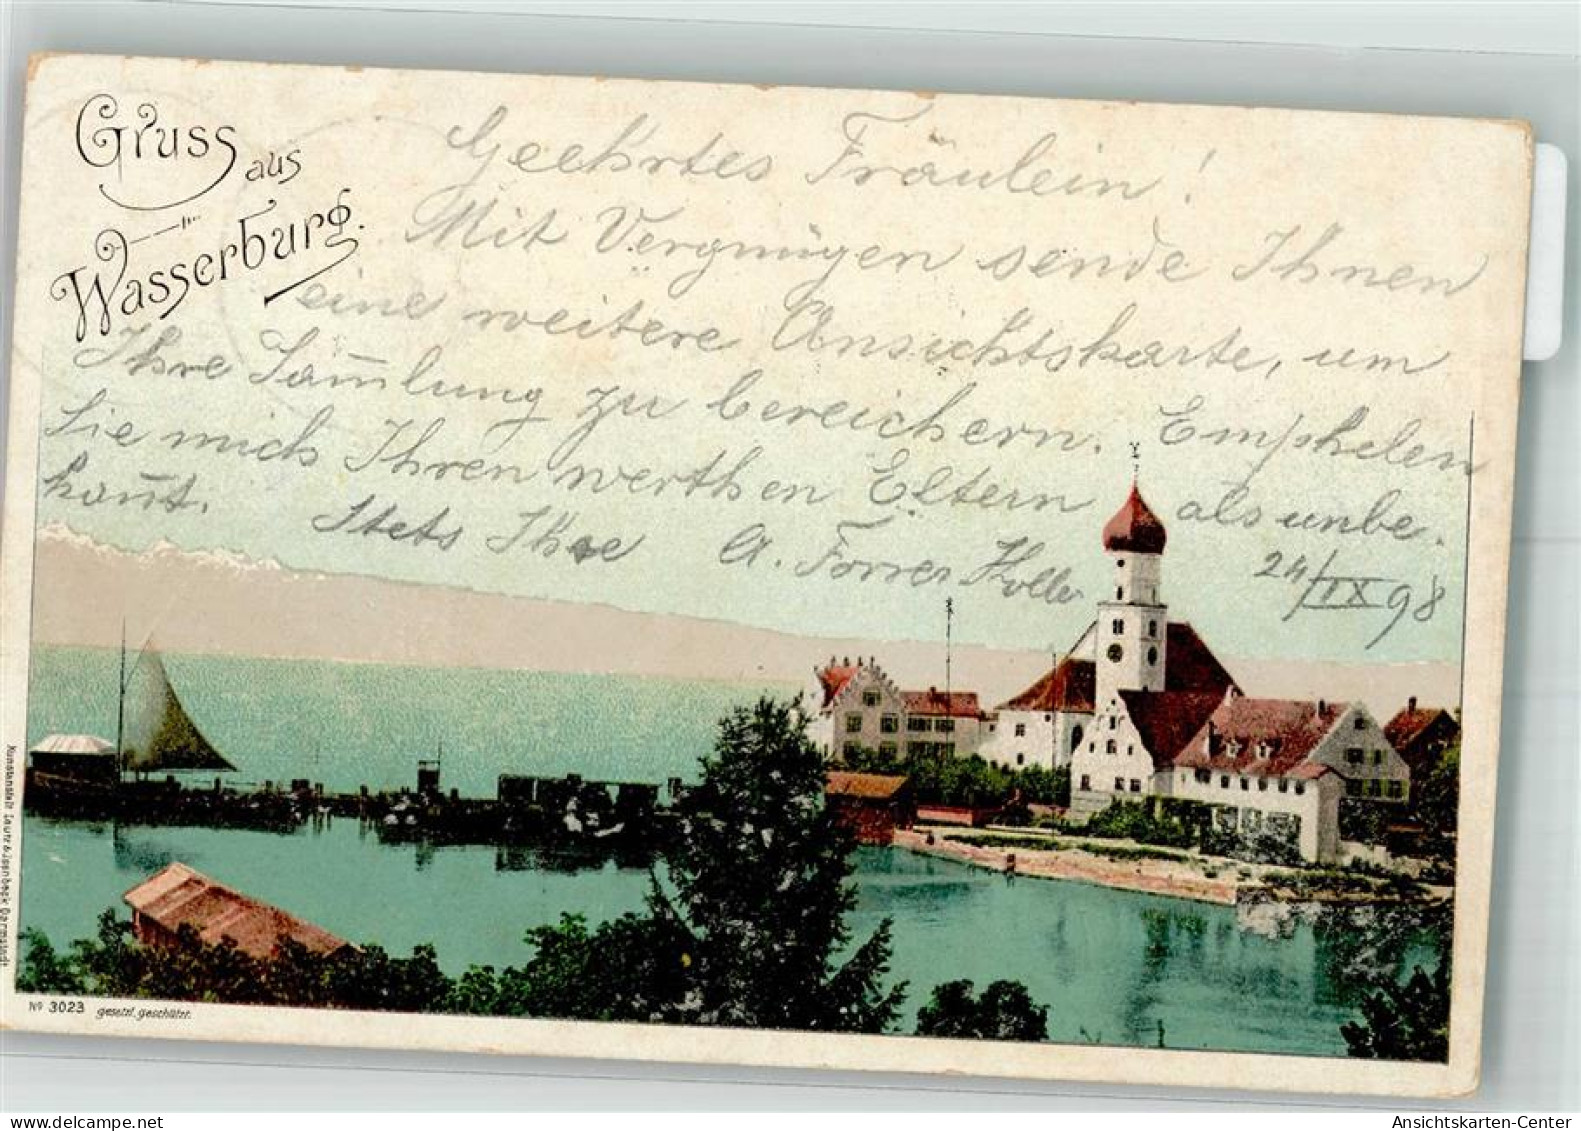 Gruss aus
Wasserburg.
Geehrtes Fräulein!
Mit Vergnügen sende Ihnen
eine weitere Ansichtskarte, um
Ihre Sam̅lung zu bereichern. Empfhelen
Sie mich Ihren werthen Eltern als unbe-
kannt.
Stets Ihre A. Forrer Holler
24/IX 98
Kunstanstalt Lautz & Isenbeck Darmstadt
No 3023 gesetzl. geschützt.
www.ansichtskartenversand.com
Ansichtskarten-Center